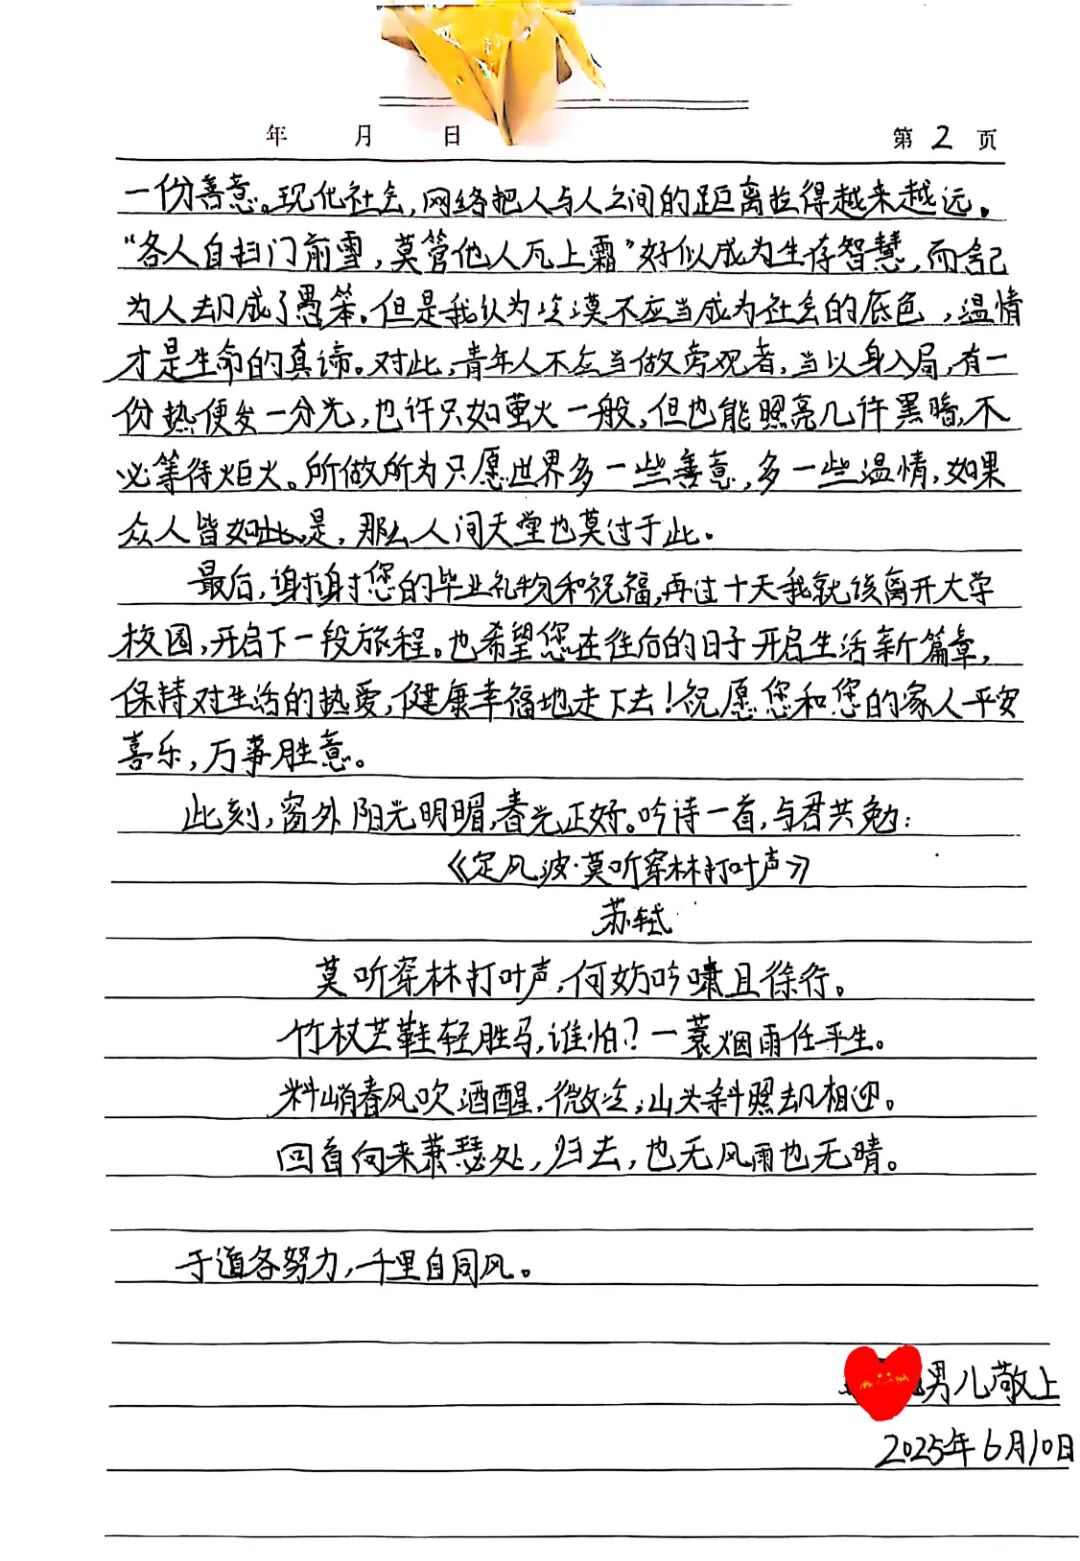 年 月 日 第 2 页
一份善意。现化社会,网络把人与人之间的距离拉得越来越远。
“各人自扫门前雪,莫管他人瓦上霜”好似成为生存智慧,而舍己
为人却成了愚笨。但是我认为冷漠不应当成为社会的底色,温情
才是生命的真谛。对此,青年人不应当做旁观者,当以身入局,有一
份热便发一分光,也许只如萤火一般,但也能照亮几许黑暗,不
必等待炬火。所做所为只愿世界多一些善意,多一些温情,如果
众人皆如此是,那么人间天堂也莫过于此。
最后,谢谢您的毕业礼物和祝福,再过十天我就该离开大学
校园,开启下一段旅程。也希望您在往后的日子开启生活新篇章,
保持对生活的热爱,健康幸福地走下去!祝愿您和您的家人平安
喜乐,万事胜意。
此刻,窗外阳光明媚,春光正好。吟诗一首,与君共勉:
《定风波·莫听穿林打叶声》
苏轼
莫听穿林打叶声,何妨吟啸且徐行。
竹杖芒鞋轻胜马,谁怕?一蓑烟雨任平生。
料峭春风吹酒醒,微冷,山头斜照却相迎。
回首向来萧瑟处,归去,也无风雨也无晴。
于道各努力,千里自同风。
男儿敬上
2025年6月10日